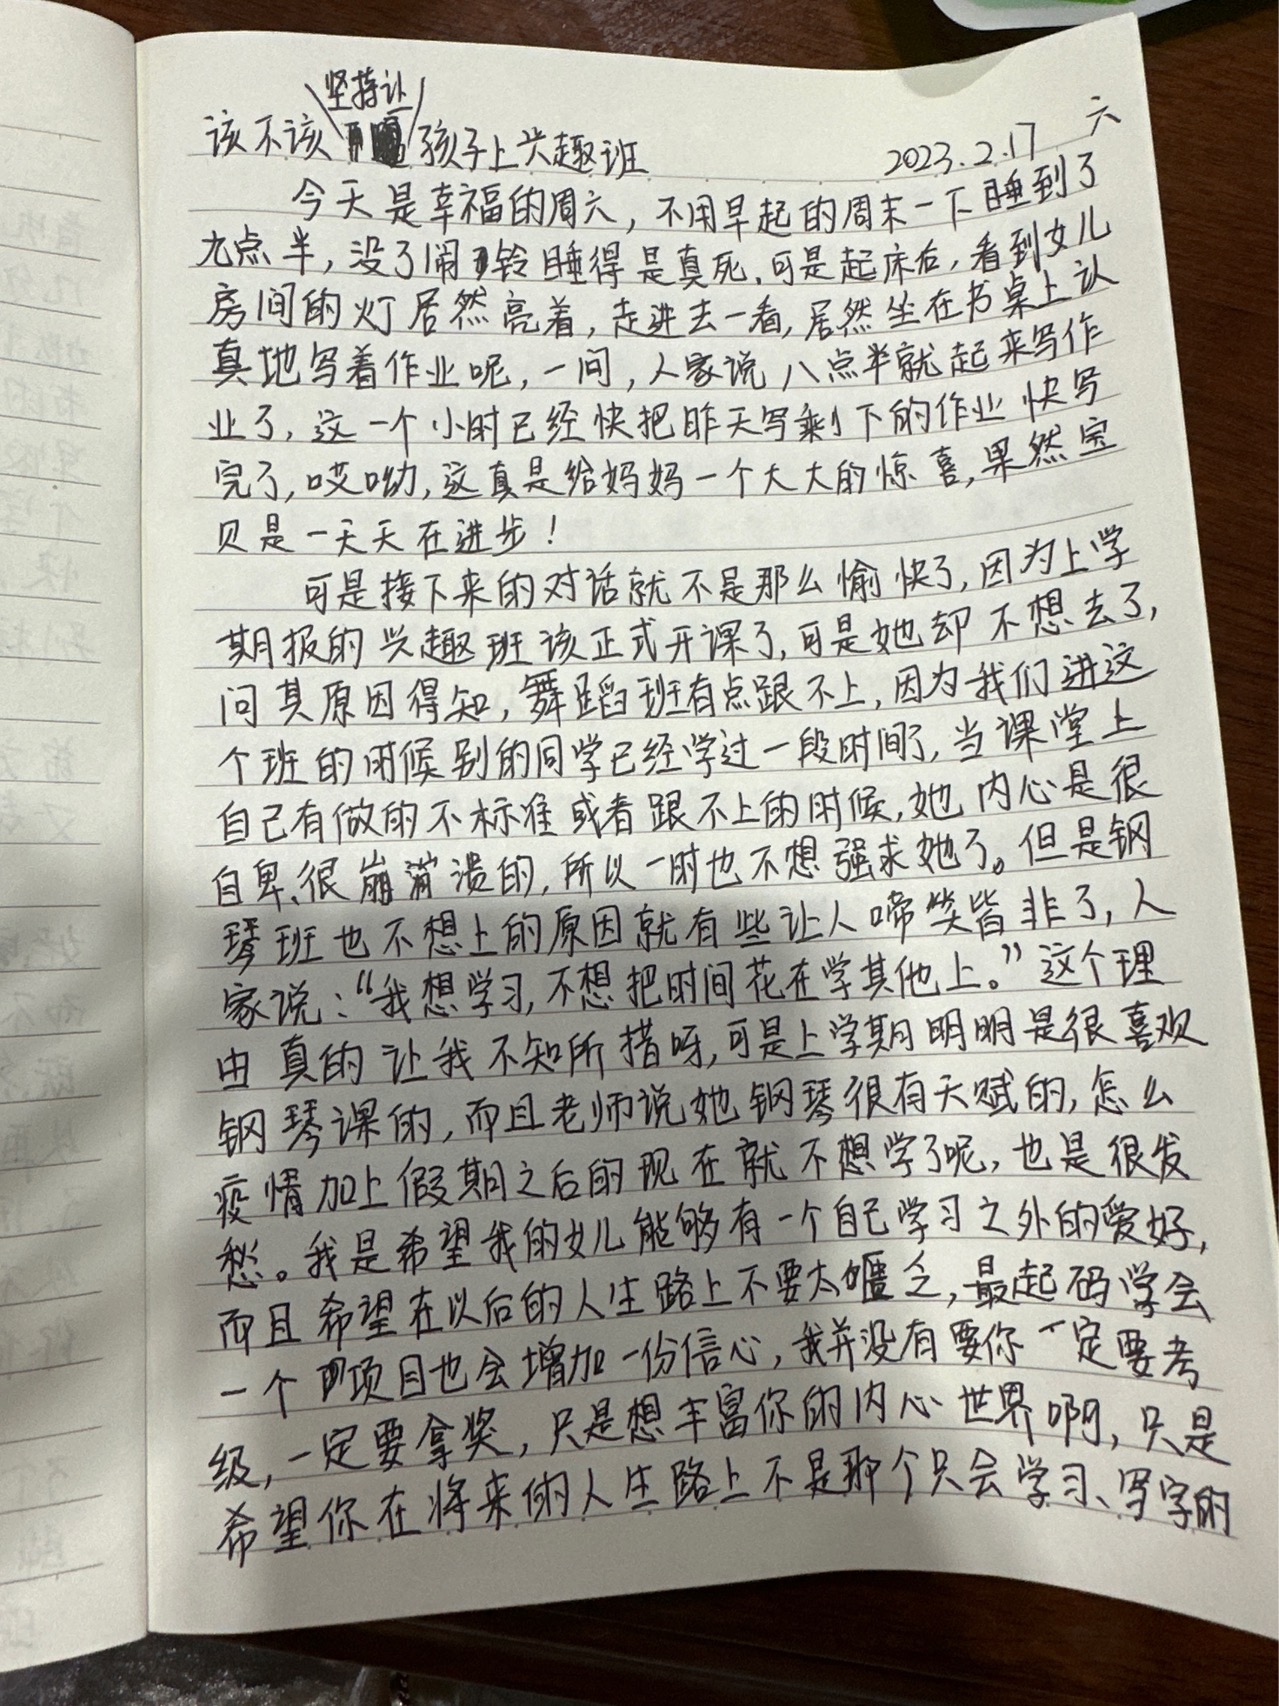 该不该坚持让孩子上兴趣班 2023.2.17 六
今天是幸福的周六，不用早起的周末一下睡到了
九点半，没了闹铃睡得是真死，可是起床后，看到女儿
房间的灯居然亮着，走进去一看，居然坐在书桌上认
真地写着作业呢，一问，人家说八点半就起来写作
业了，这一个小时已经快把昨天写剩下的作业快写
完了，哎呦，这真是给妈妈一个大大的惊喜，果然宝
贝是一天天在进步！
可是接下来的对话就不是那么愉快了，因为上学
期报的兴趣班该正式开课了，可是她却不想去了，
问其原因得知，舞蹈班有点跟不上，因为我们进这
个班的时候别的同学已经学过一段时间了，当课堂上
自己有做的不标准或者跟不上的时候，她内心是很
自卑、很崩溃的，所以一时也不想强求她了。但是钢
琴班也不想上的原因就有些让人啼笑皆非了，人
家说：“我想学习，不想把时间花在学其他上。”这个理
由真的让我不知所措呀，可是上学期明明是很喜欢
钢琴课的，而且老师说她钢琴很有天赋的，怎么
疫情加上假期之后的现在就不想学了呢，也是很发
愁。我是希望我的女儿能够有一个自己学习之外的爱好，
而且希望在以后的人生路上不要太匮乏，最起码学会
一个项目也会增加一份信心，我并没有要你一定要考
级，一定要拿奖，只是想丰富你的内心世界啊，只是
希望你在将来的人生路上不是那个只会学习、写字的